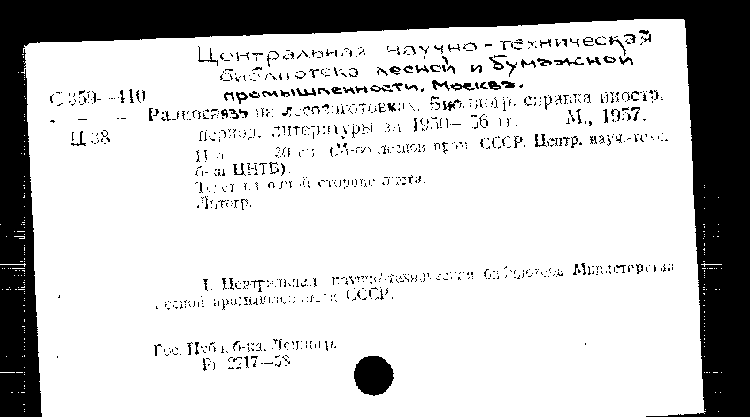 Центральная научно-техническая
библиотека лесной и бумажной
промышленности. Москва.
С 359--410
Ц 38
Радиосвязь на лесозаготовках. Библиогр. справка иностр.
период. литературы за 1950—56 гг. М., 1957.
11 л. 20 см. (М-во лесной пром. СССР. Центр. науч.-техн.
б-ка ЦНТБ).
Текст на одной стороне листа.
Литогр.
I. Центральная научно-техническая библиотека Министерства
лесной промышленности СССР.
Гос. Публ. б-ка. Ленингр.
2217—58